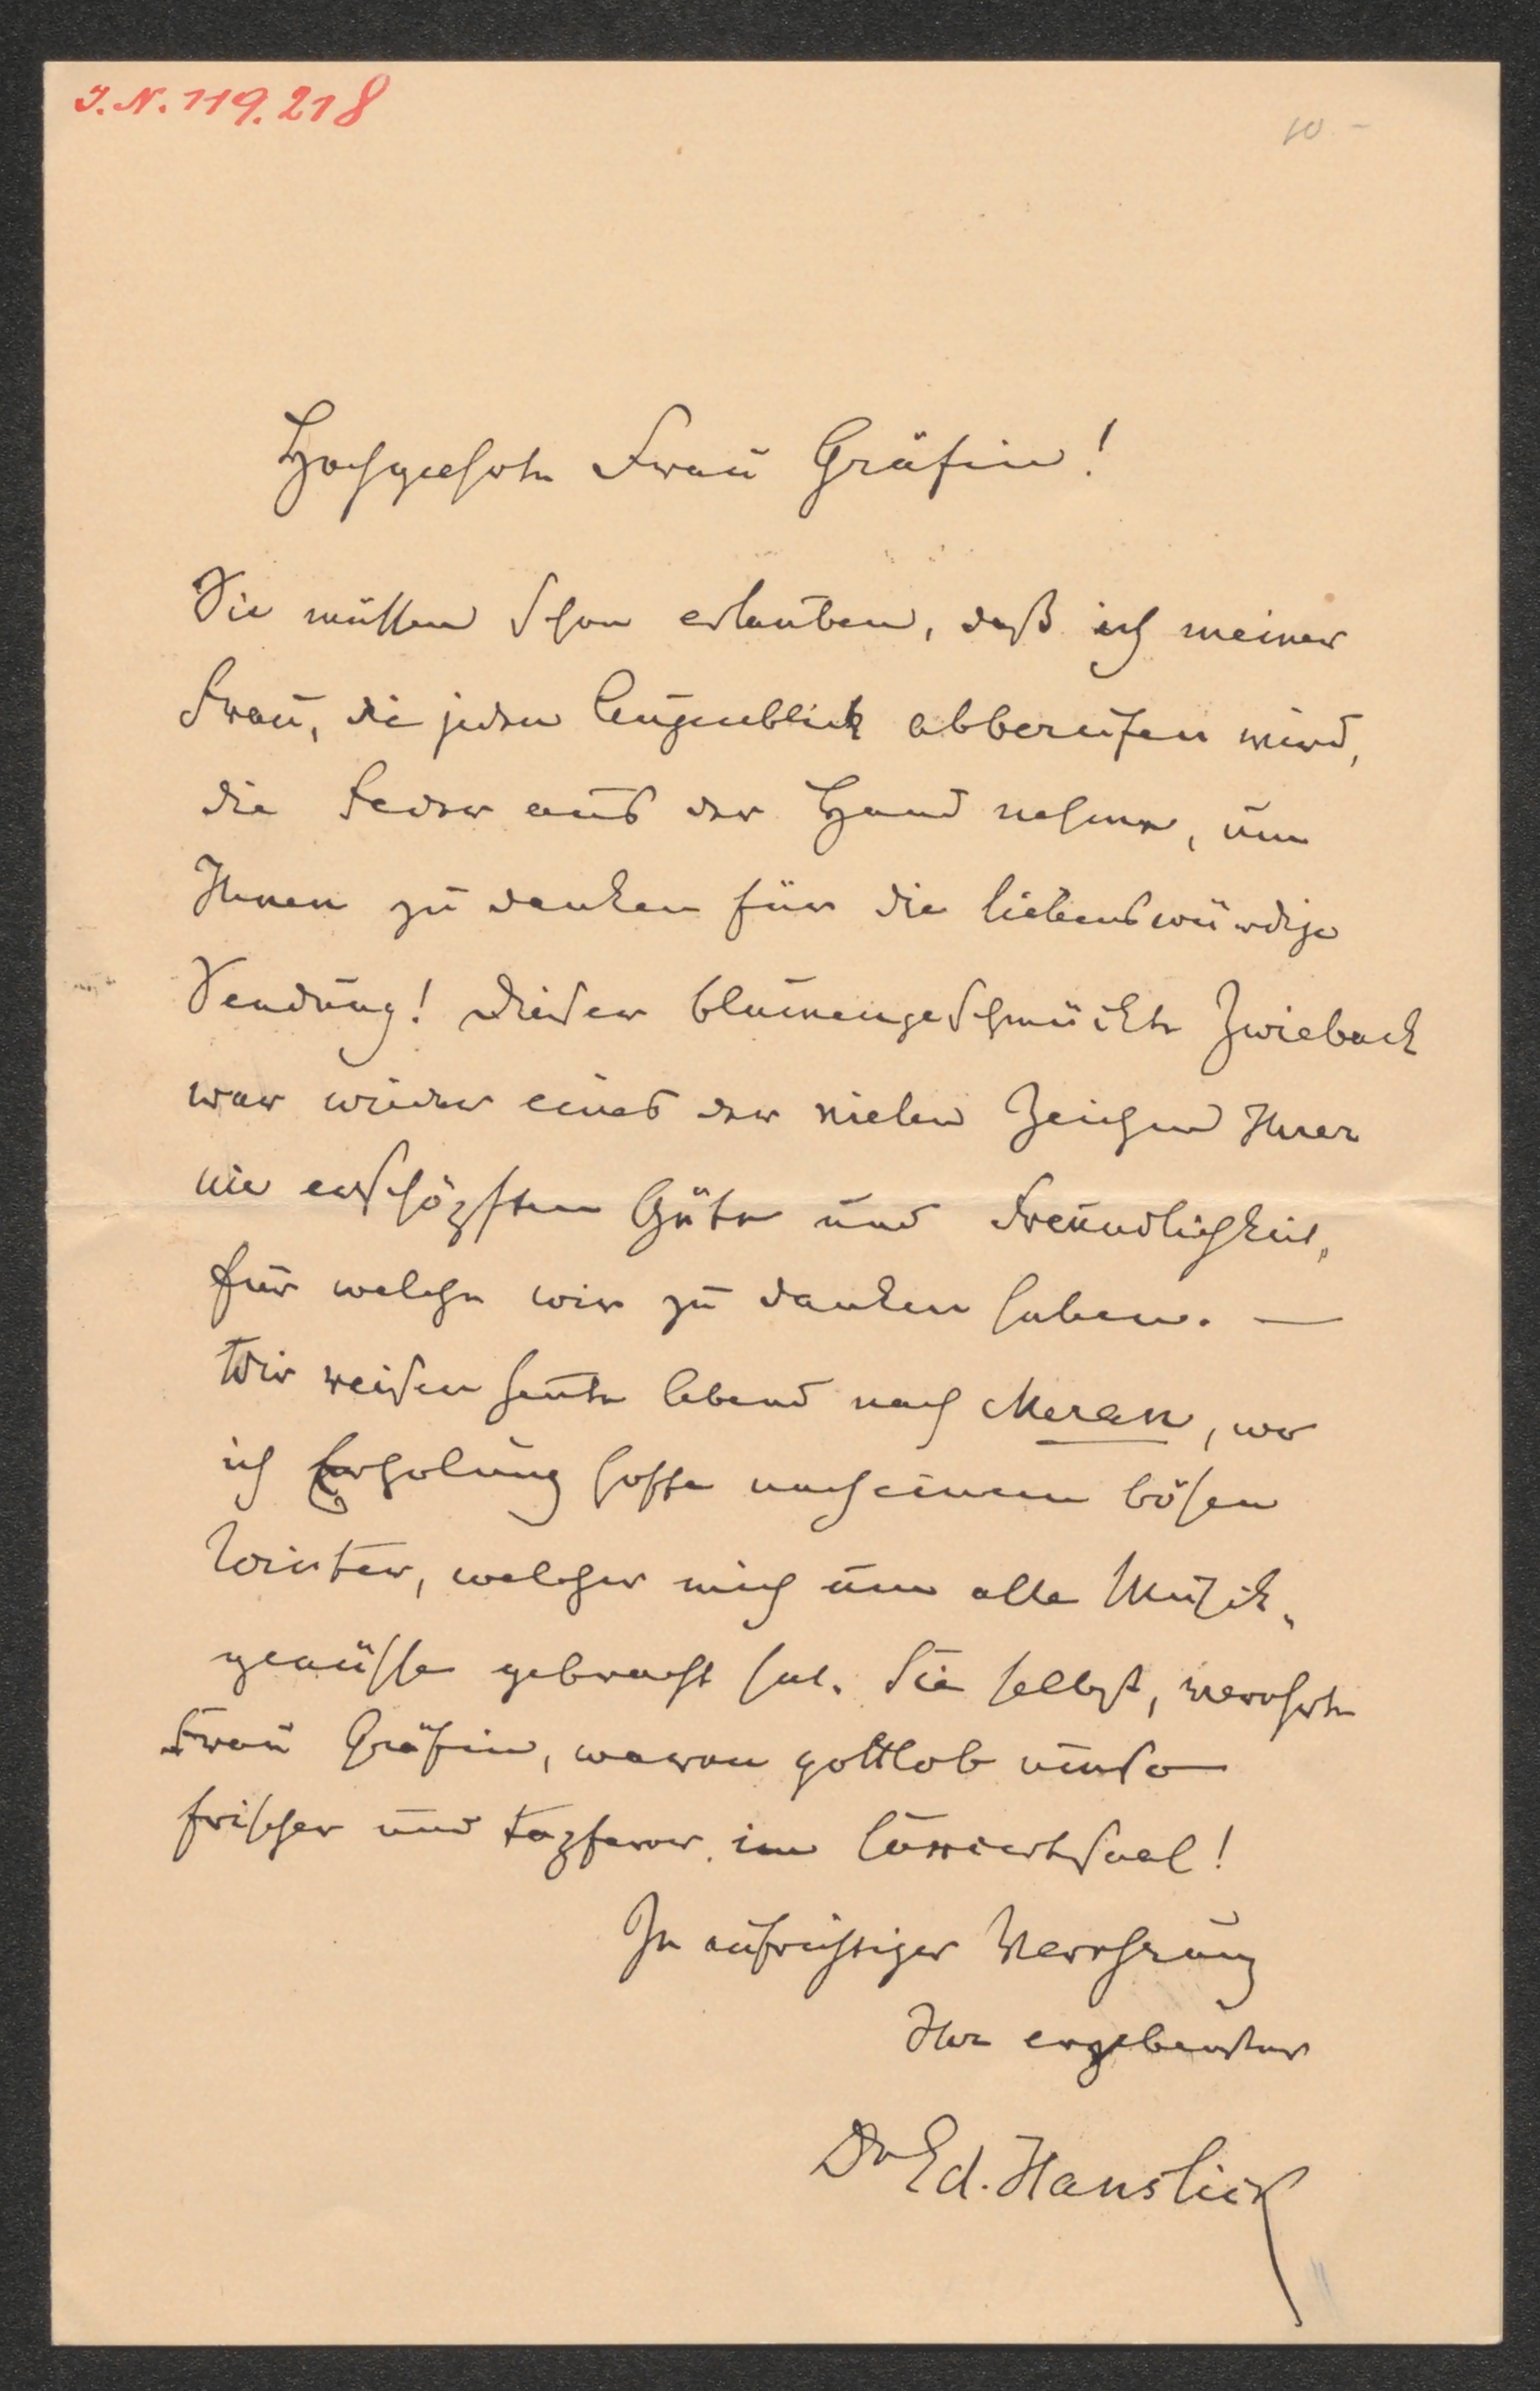 J.N. 119.218
10 -
Hochgeehrte Frau Gräfin!
Sie müssen schon erlauben, daß ich meiner
Frau, die jeden Augenblick abberufen wird,
die Feder aus der Hand nehme, um
Ihnen zu danken für die liebenswürdige
Sendung! Dieser blumengeschmückte Zwieback
war wieder eines der vielen Zeichen Ihrer
nie erschöpften Güte und Freundlichkeit,
für welche wir zu danken haben. —
Wir reisen heute Abend nach Meran, wo
ich Erholung hoffe nach einem bösen
Winter, welcher mich um alle Musik-
genüsse gebracht hat. Sie selbst, verehrte
Frau Gräfin, waren gottlob umso
frischer und tapferer im Concertsaal!
In aufrichtiger Verehrung
Ihr ergebenster
Dr Ed. Hanslick